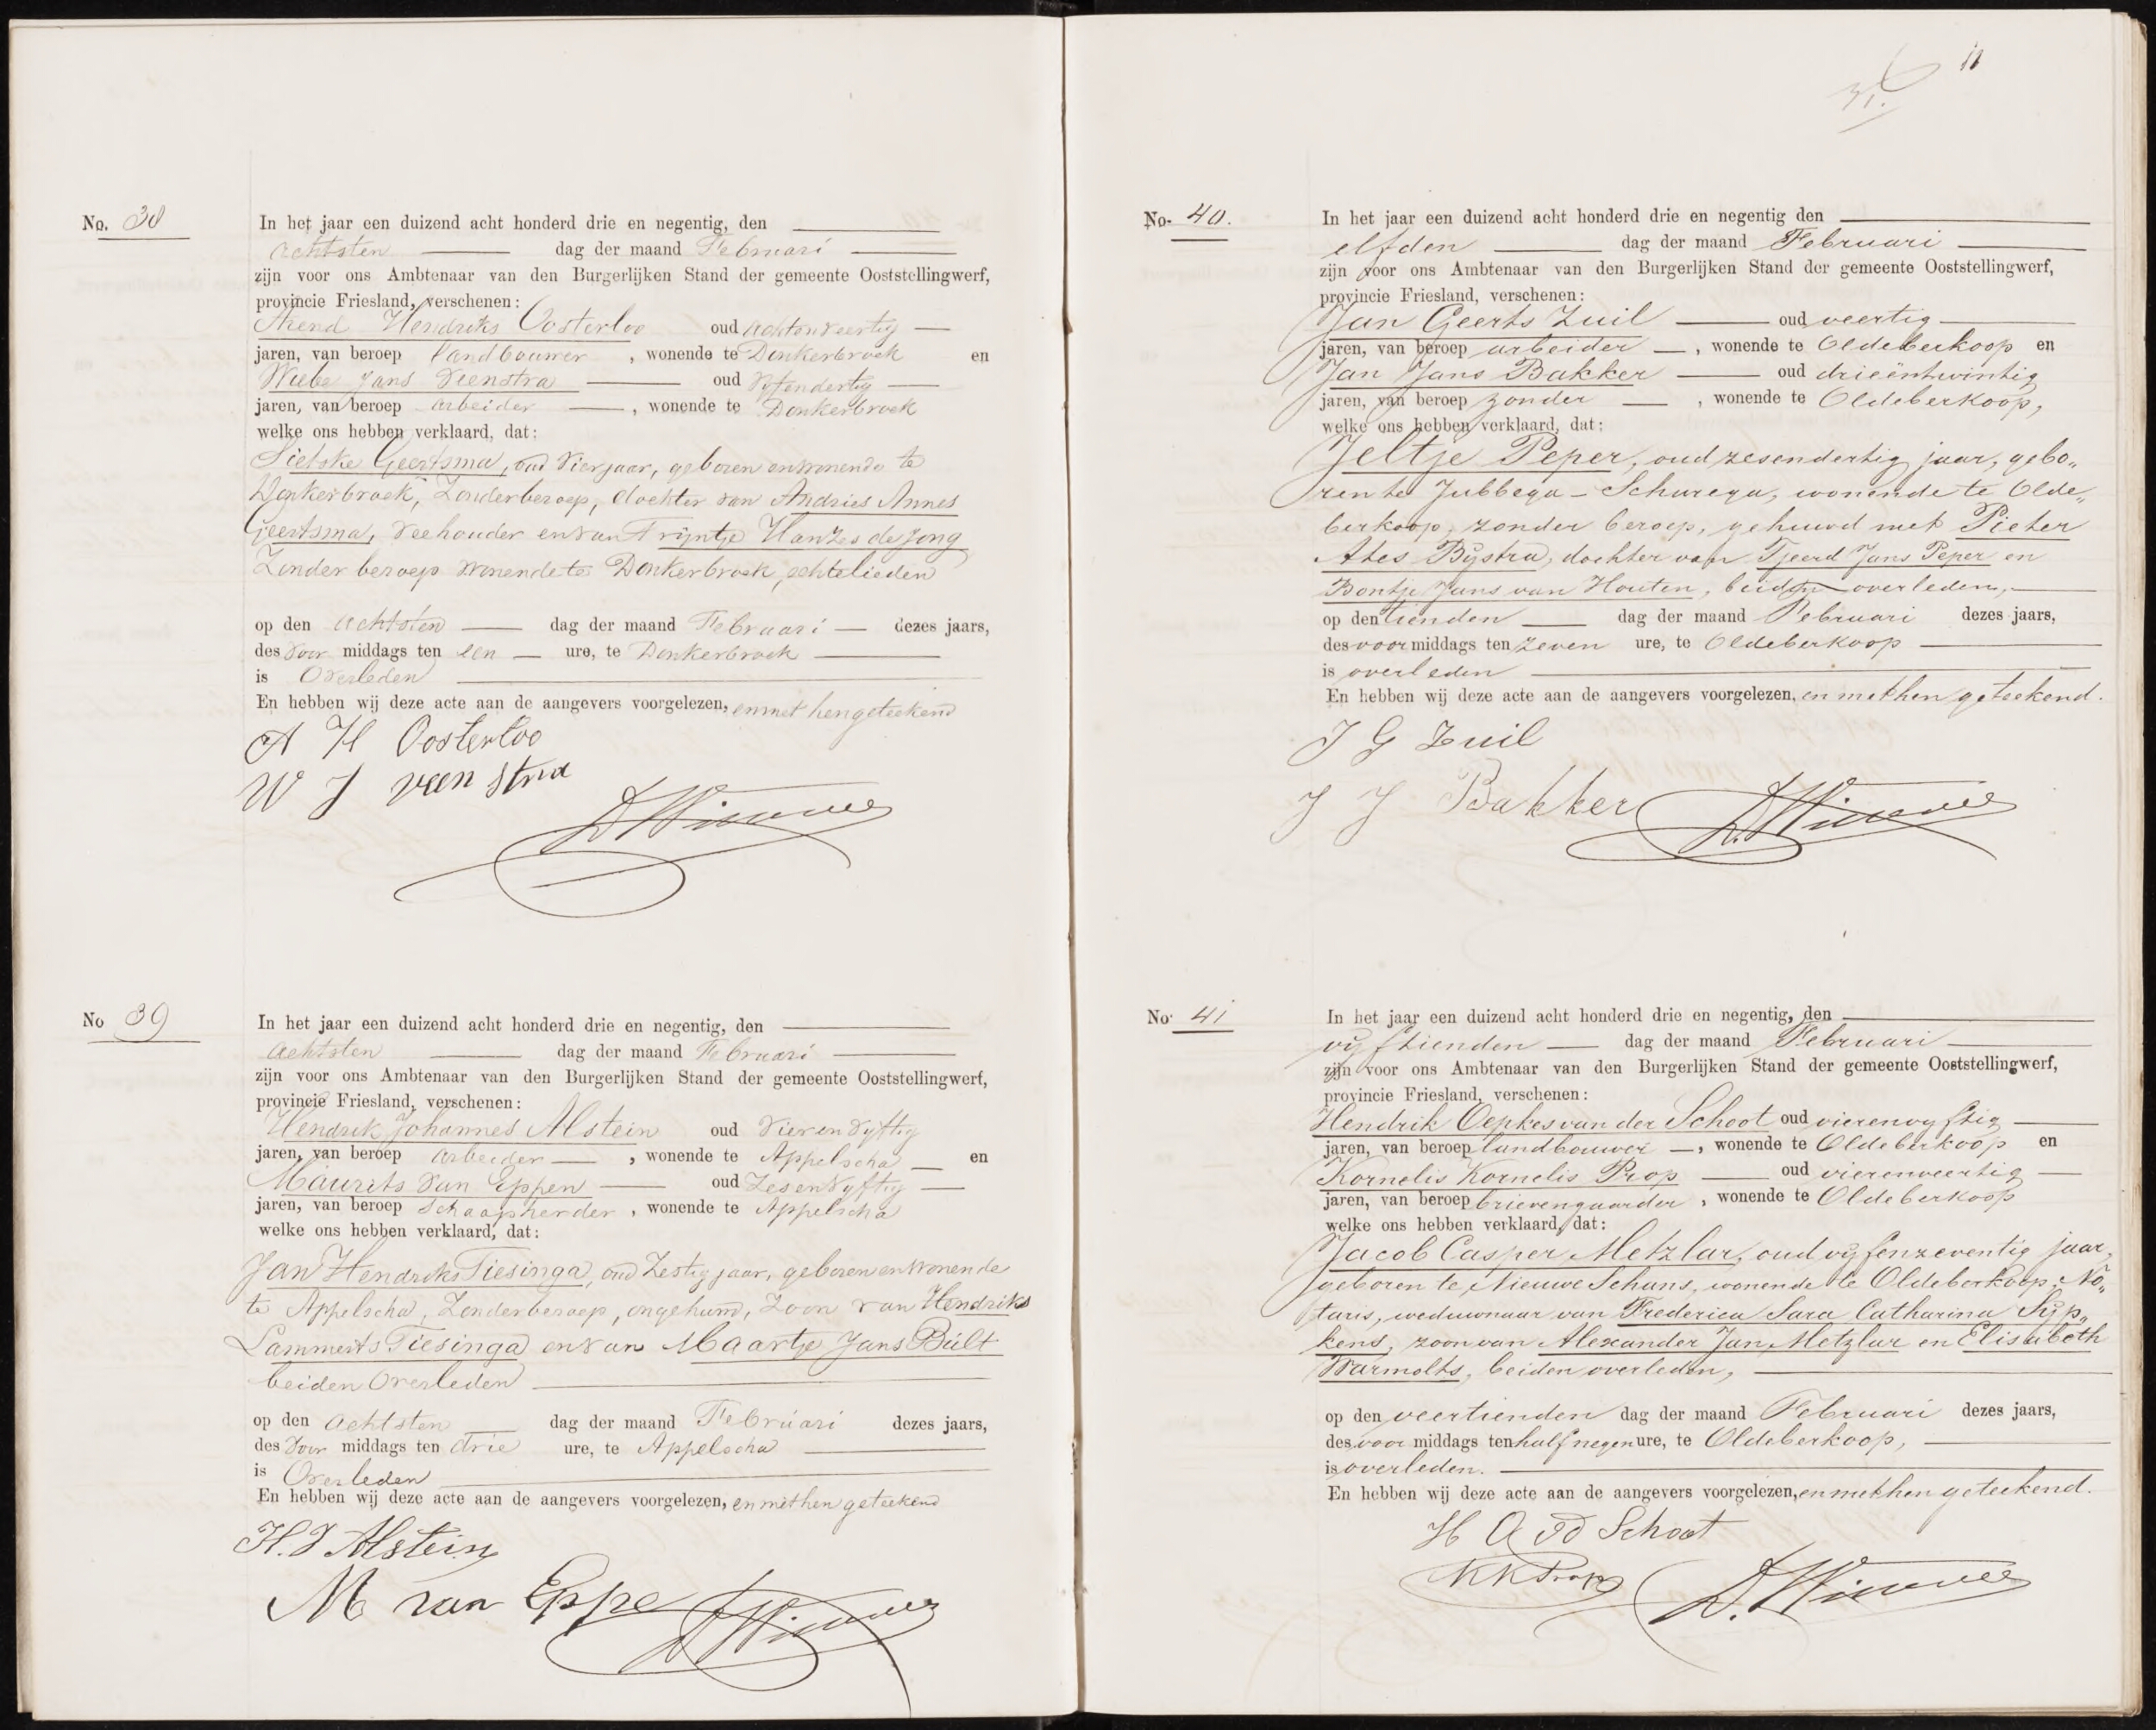 No. 38
In het jaar een duizend acht honderd drie en negentig, den
achtsten dag der maand Februari
zijn voor ons Ambtenaar van den Burgerlijken Stand der gemeente Ooststellingwerf,
provincie Friesland, verschenen:
Arend Hendriks Oosterloo oud achtenveertig
jaren, van beroep landbouwer, wonende te Donkerbroek en
Wiebe Jans Veenstra oud vyfendertig
jaren, van beroep arbeider, wonende te Donkerbroek
welke ons hebben verklaard, dat:
Sietske Geertsma, oud vier jaar, geboren en wonende te
Donkerbroek, Zonder beroep, dochter van Andries Annes
Geertsma, veehouder en van Trijntje Hanzes de Jong
Zonder beroep wonende te Donkerbroek, echtelieden
op den achtsten dag der maand Februari dezes jaars,
des voor middags ten een ure, te Donkerbroek
is Overleden
En hebben wij deze acte aan de aangevers voorgelezen, en met hen geteekend
A H Oosterloo
W J veenstra
No 39
In het jaar een duizend acht honderd drie en negentig, den
achtsten dag der maand Februari
zijn voor ons Ambtenaar van den Burgerlijken Stand der gemeente Ooststellingwerf,
provincie Friesland, verschenen:
Hendrik Johannes Alstein oud vierenvyftig
jaren, van beroep arbeider, wonende te Appelscha en
Maurits van Eppen oud Zesenvyftig
jaren, van beroep Schaapherder, wonende te Appelscha
welke ons hebben verklaard, dat:
Jan Hendriks Tiesinga, oud Zestig jaar, geboren en wonende
te Appelscha, Zonder beroep, ongehuwd, Zoon van Hendriks
Lammerts Tiesinga en van Maartje Jans Bult
beiden Overleden
op den achtsten dag der maand Februari dezes jaars,
des voor middags ten drie ure, te Appelscha
is Overleden
En hebben wij deze acte aan de aangevers voorgelezen, en met hen geteekend
H. J Alstein
M van Eppe
11
No. 40.
In het jaar een duizend acht honderd drie en negentig den
elfden dag der maand Februari
zijn voor ons Ambtenaar van den Burgerlijken Stand der gemeente Ooststellingwerf,
provincie Friesland, verschenen:
Jan Geerts Zuil oud veertig
jaren, van beroep arbeider, wonende te Oldeberkoop en
Jan Jans Bakker oud drieëntwintig
jaren, van beroep zonder, wonende te Oldeberkoop,
welke ons hebben verklaard, dat:
Jeltje Peper, oud zesendertig jaar, gebo„
ren te Jubbega-Schurega, wonende te Olde„
berkoop, zonder beroep, gehuwd met Pieter
Ates Bijstra, dochter van Tjeerd Jans Peper en
Bontje Jans van Houten, beiden overleden,
op den tienden dag der maand Februari dezes jaars,
des voormiddags ten zeven ure, te Oldeberkoop
is overleden
En hebben wij deze acte aan de aangevers voorgelezen, en met hen geteekend.
J G Zuil
J J Bakker
No. 41
In het jaar een duizend acht honderd drie en negentig, den
vijftienden dag der maand Februari
zijn voor ons Ambtenaar van den Burgerlijken Stand der gemeente Ooststellingwerf,
provincie Friesland, verschenen:
Hendrik Oepkes van der Schoot oud vierenvyftig
jaren, van beroep landbouwer, wonende te Oldeberkoop en
Kornelis Kornelis Prop oud vierenveertig
jaren, van beroep brievengaarder, wonende te Oldeberkoop
welke ons hebben verklaard, dat:
Jacob Casper Metzlar, oud vijfenzeventig jaar,
geboren te Nieuwe Schans, wonende te Oldeberkoop, No„
taris, weduwnaar van Frederica Sara Catharina Sijp„
kens, zoon van Alexander Jan Metzlar en Elisabeth
Warmolts, beiden overleden,
op den veertienden dag der maand Februari dezes jaars,
des voor middags ten half negen ure, te Oldeberkoop,
is overleden.
En hebben wij deze acte aan de aangevers voorgelezen, en met hen geteekend.
H O vd Schoot
K K Prop